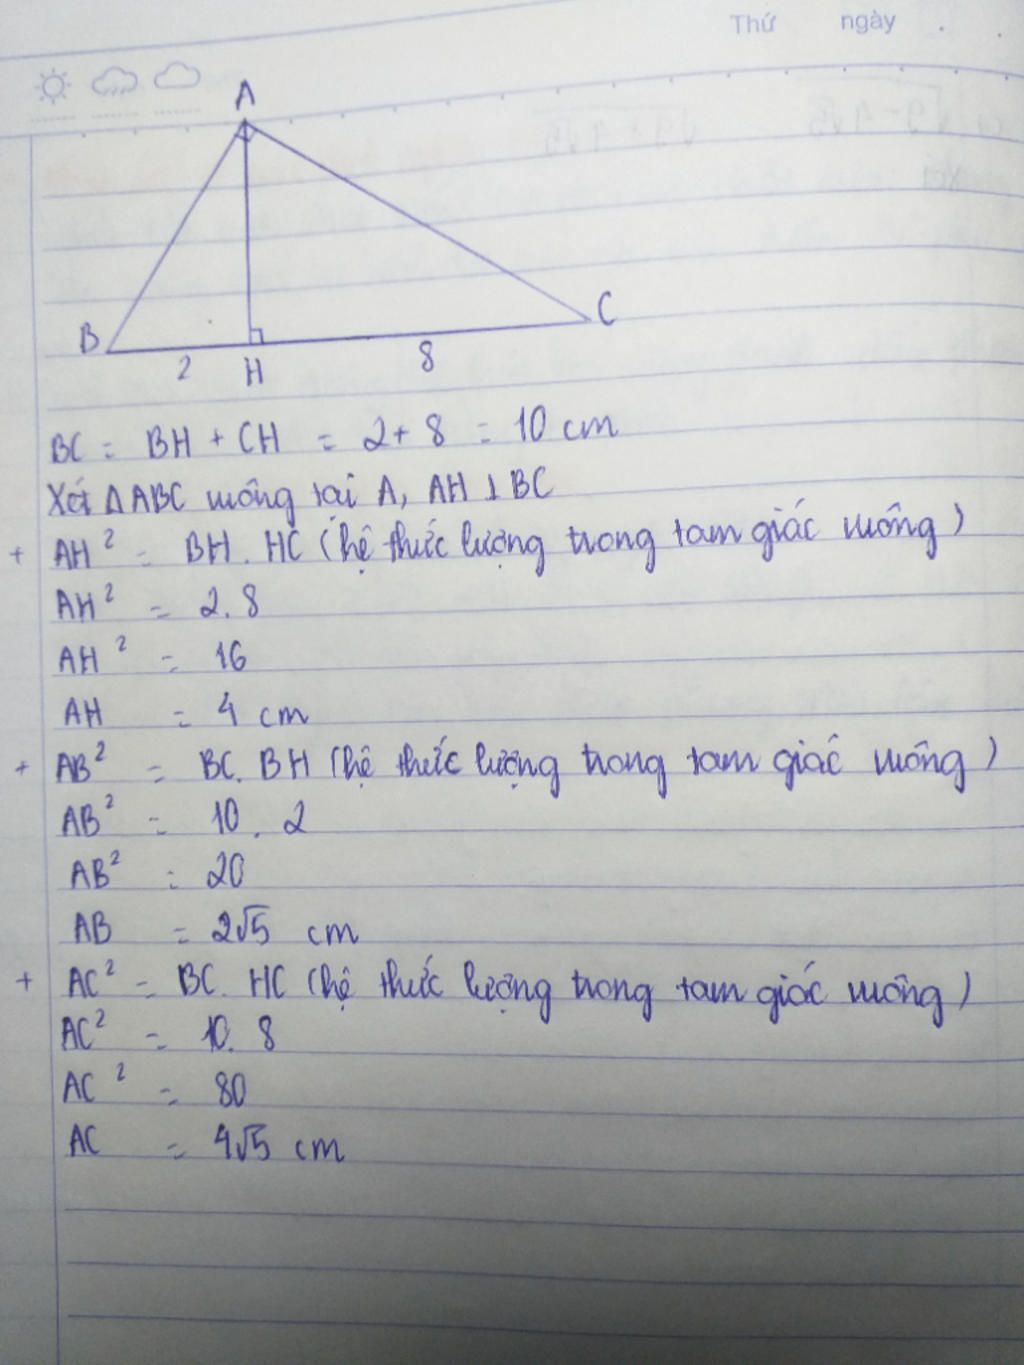 Thứ ngày
A
B
C
2
H
8
BC = BH + CH = 2+ 8 = 10 cm
Xét ΔABC vuông tại A, AH ⊥ BC
+ AH² = BH . HC (hệ thức lượng trong tam giác vuông)
AH² = 2.8
AH² = 16
AH = 4 cm
+ AB² = BC. BH (hệ thức lượng trong tam giác vuông)
AB² = 10 . 2
AB² = 20
AB = 2√5 cm
+ AC² = BC. HC (hệ thức lượng trong tam giác vuông)
AC² = 10. 8
AC² = 80
AC = 4√5 cm